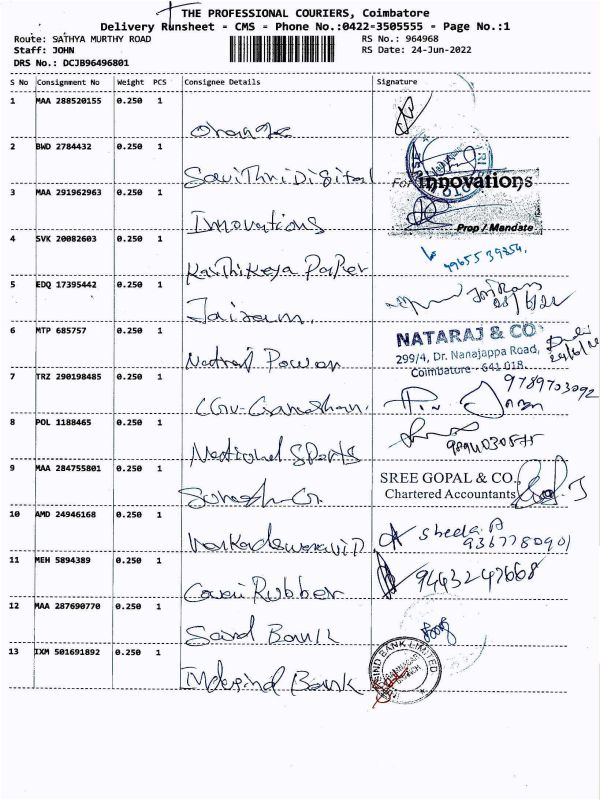 THE PROFESSIONAL COURIERS, Coimbatore
Delivery Runsheet - CMS - Phone No.:0422-3505555 - Page No.:1
Route: SATHYA MURTHY ROAD RS No.: 964968
Staff: JOHN RS Date: 24-Jun-2022
DRS No.: DCJB96496801
S No Consignment No Weight PCS Consignee Details Signature
1 MAA 288520155 0.250 1
Orange
2 BWD 2784432 0.250 1
Savithri Digital
For Innovations
3 MAA 291962963 0.250 1
Innovations
Prop / Mandate
4 SVK 20082603 0.250 1
Karthikeya Paper
5 EDQ 17395442 0.250 1
Jairam.
6 MTP 685757 0.250 1
NATARAJ & CO
299/4, Dr. Nanajappa Road,
Coimbatore - 641 018.
Natraj Power
7 TRZ 290198485 0.250 1
9789703092
8 POL 1188465 0.250 1
National Sports
9 MAA 284755801 0.250 1
SREE GOPAL & CO.,
Chartered Accountants
10 AMD 24946168 0.250 1
Sheela.A
9367780901
11 MEH 5894389 0.250 1
9443247668
Rubber
12 MAA 287690770 0.250 1
Bank
13 IXM 501691892 0.250 1
Indusind Bank